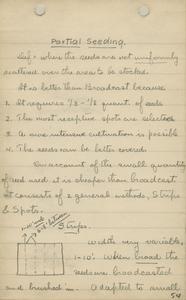 Partial Seeding.
Def - where the seeds are not uniformly
scattered over the area to be stocked.
It is better than Broadcast because
1. It requires 1/3 - 1/8 quant. of seeds
2. The most receptive spots are selected
3. A more intensive cultivation is possible
4. The seeds can be better covered.
On account of the small quantity
of seed used it is cheaper than broadcast
It consists of 2 general methods, Strips
& Spots.
Strips.
Width very variable,
1-10'. When broad the
seeds are broadcasted
and brushed in. Adapted to small